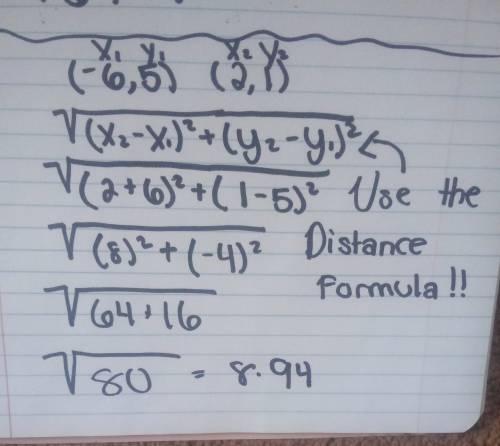 x₁ y₁ x₂ y₂
(-6,5) (2,1)
√(x₂-x₁)²+(y₂-y₁)²
√(2+6)²+(1-5)² Use the
√(8)²+(-4)² Distance
Formula!!
√64+16
√80 = 8.94